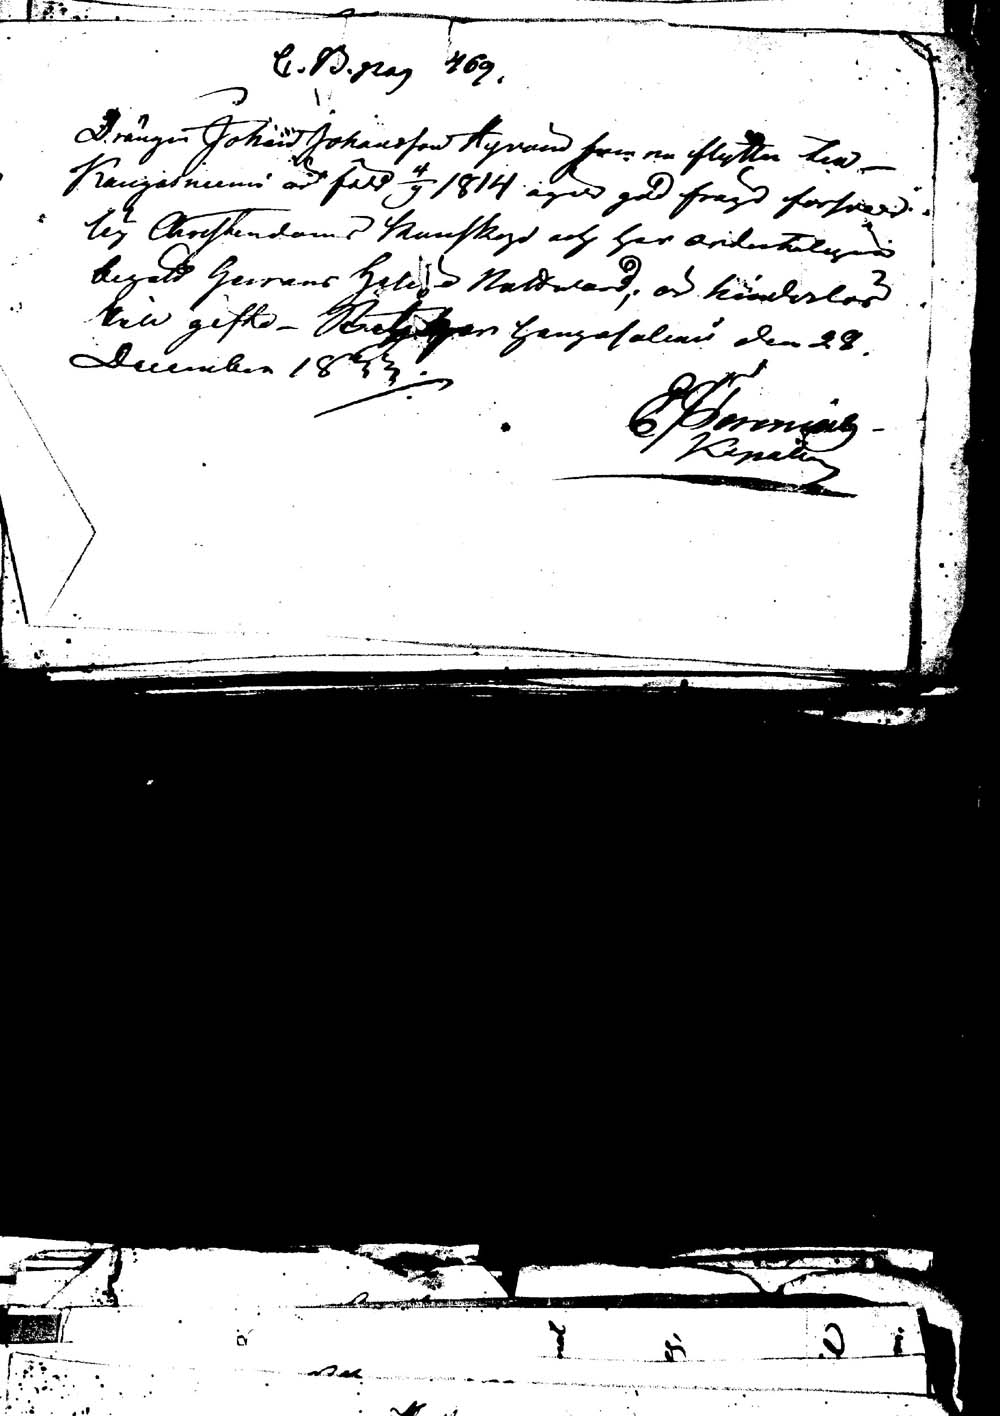 C. B. pag 469.
Drängen Johan Johansson Hyvönen som nu flyttar till
Kangasniemi är född 4/9 1814 äger god frägd försvar-
lig Christendoms kunskap och har ordenteligen
begått Herrans Helige Nattvard, är hinderlös
till gifte – Hangasalmi den 28.
December 1833.
Kapellan